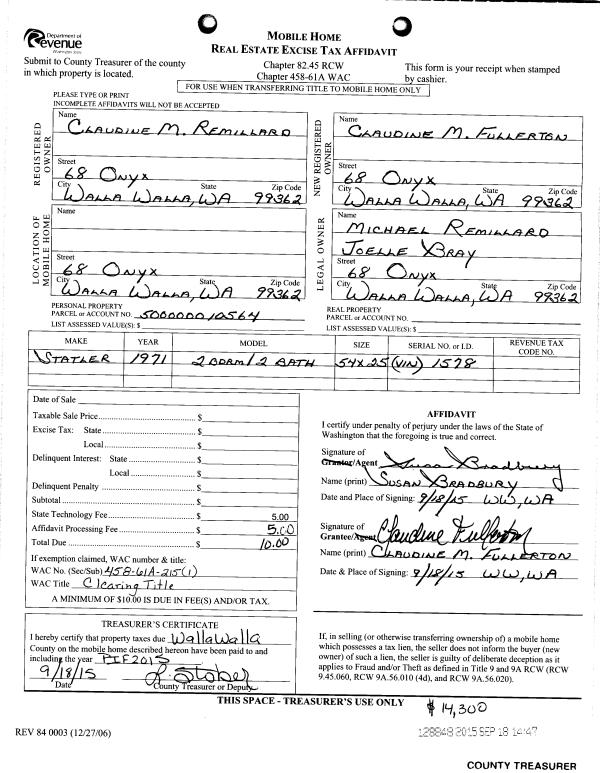 Department of
Revenue
Washington State
MOBILE HOME
REAL ESTATE EXCISE TAX AFFIDAVIT
Submit to County Treasurer of the county
in which property is located.
Chapter 82.45 RCW
Chapter 458-61A WAC
This form is your receipt when stamped
by cashier.
FOR USE WHEN TRANSFERRING TITLE TO MOBILE HOME ONLY
PLEASE TYPE OR PRINT
INCOMPLETE AFFIDAVITS WILL NOT BE ACCEPTED
REGISTERED OWNER
Name
CLAUDINE M. REMILLARD
Street
68 ONYX
City State Zip Code
WALLA WALLA, WA 99362
NEW REGISTERED OWNER
Name
CLAUDINE M. FULLERTON
Street
68 ONYX
City State Zip Code
WALLA WALLA, WA 99362
LOCATION OF MOBILE HOME
Name
Street
68 ONYX
City State Zip Code
WALLA WALLA, WA 99362
LEGAL OWNER
Name
MICHAEL REMILLARD
JOELLE BRAY
Street
68 ONYX
City State Zip Code
WALLA WALLA, WA 99362
PERSONAL PROPERTY
PARCEL or ACCOUNT NO. 500000010564
LIST ASSESSED VALUE(S): $
REAL PROPERTY
PARCEL or ACCOUNT NO.
LIST ASSESSED VALUE(S): $
MAKE YEAR MODEL SIZE SERIAL NO. or I.D. REVENUE TAX CODE NO.
STATLER 1971 2 BDRM/2 BATH 54X25 (VIN) 1578
Date of Sale
Taxable Sale Price $
Excise Tax: State $
Local $
Delinquent Interest: State $
Local $
Delinquent Penalty $
Subtotal $
State Technology Fee $ 5.00
Affidavit Processing Fee $ 5.00
Total Due $ 10.00
If exemption claimed, WAC number & title:
WAC No. (Sec/Sub) 458-61A-215(1)
WAC Title Clearing Title
A MINIMUM OF $10.00 IS DUE IN FEE(S) AND/OR TAX.
AFFIDAVIT
I certify under penalty of perjury under the laws of the State of
Washington that the foregoing is true and correct.
Signature of
Grantor/Agent Susan Bradbury
Name (print) SUSAN BRADBURY
Date and Place of Signing: 9/18/15 WW, WA
Signature of
Grantee/Agent Claudine Fullerton
Name (print) CLAUDINE M. FULLERTON
Date & Place of Signing: 9/18/15 WW, WA
TREASURER'S CERTIFICATE
I hereby certify that property taxes due Walla Walla
County on the mobile home described hereon have been paid to and
including the year PIF2015
9/18/15
Date County Treasurer or Deputy
If, in selling (or otherwise transferring ownership of) a mobile home
which possesses a tax lien, the seller does not inform the buyer (new
owner) of such a lien, the seller is guilty of deliberate deception as it
applies to Fraud and/or Theft as defined in Title 9 and 9A RCW (RCW
9.45.060, RCW 9A.56.010 (4d), and RCW 9A.56.020).
THIS SPACE - TREASURER'S USE ONLY
$14,300
REV 84 0003 (12/27/06)
128848 2015 SEP 18 14:47
COUNTY TREASURER